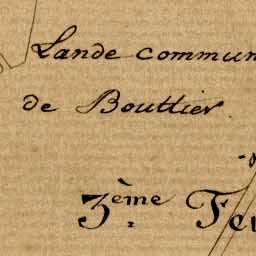 Lande commun
de Bouttier.
3ème Feu